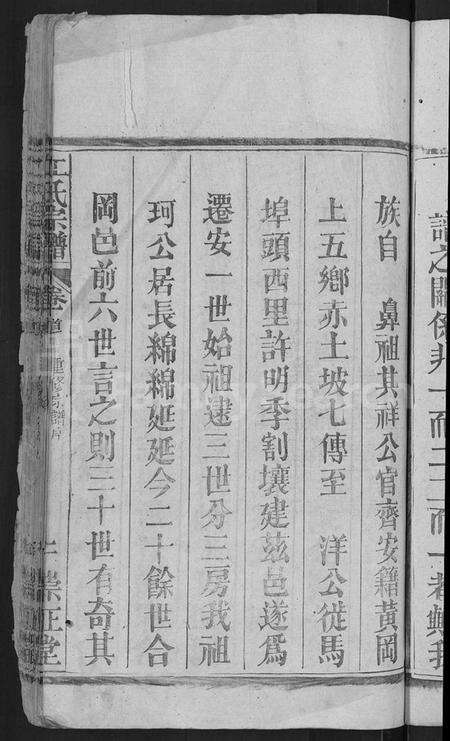 譜之關係非一而二二而一者與我
族自　鼻祖其祥公官齊安籍黃岡
上五鄉赤土坡七傳至　洋公從馬
埠頭西里許明季割壤建茲邑遂爲
遷安一世始祖逮三世分三房我祖
珂公居長綿綿延延今二十餘世合
岡邑前六世言之則三十世有奇其
江氏宗譜　卷首　重修宗譜序　崇正堂